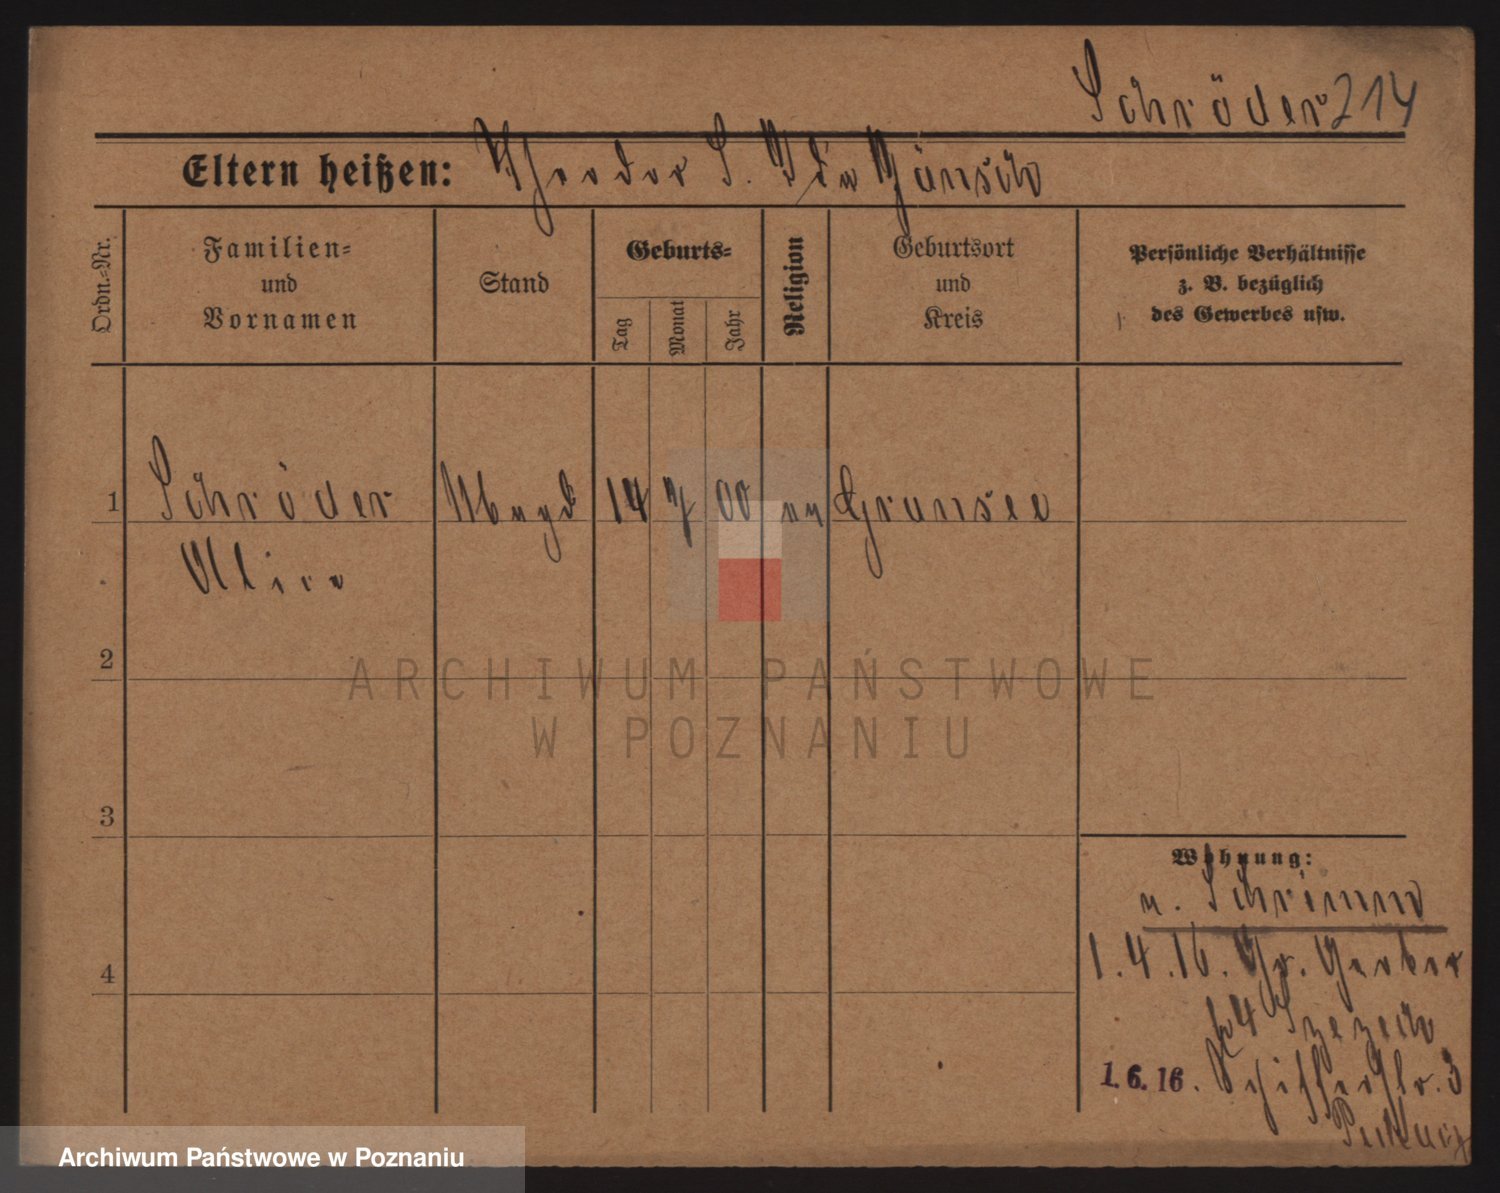 Schröder 214
Eltern heißen: Theodor S. Ida Jänsch
Ordn.-Nr.
Familien-
und
Vornamen
Stand
Geburts-
Tag
Monat
Jahr
Religion
Geburtsort
und
Kreis
Persönliche Verhältnisse
z. B. bezüglich
des Gewerbes usw.
1 Schröder Magd 14 7 00 Gransee
2
3
4
Wohnung:
n. Schrimm
1.4.16. Gr. Gerber
1.6.16. Schifferstr. 3
ARCHIWUM PAŃSTWOWE
W POZNANIU
Archiwum Państwowe w Poznaniu